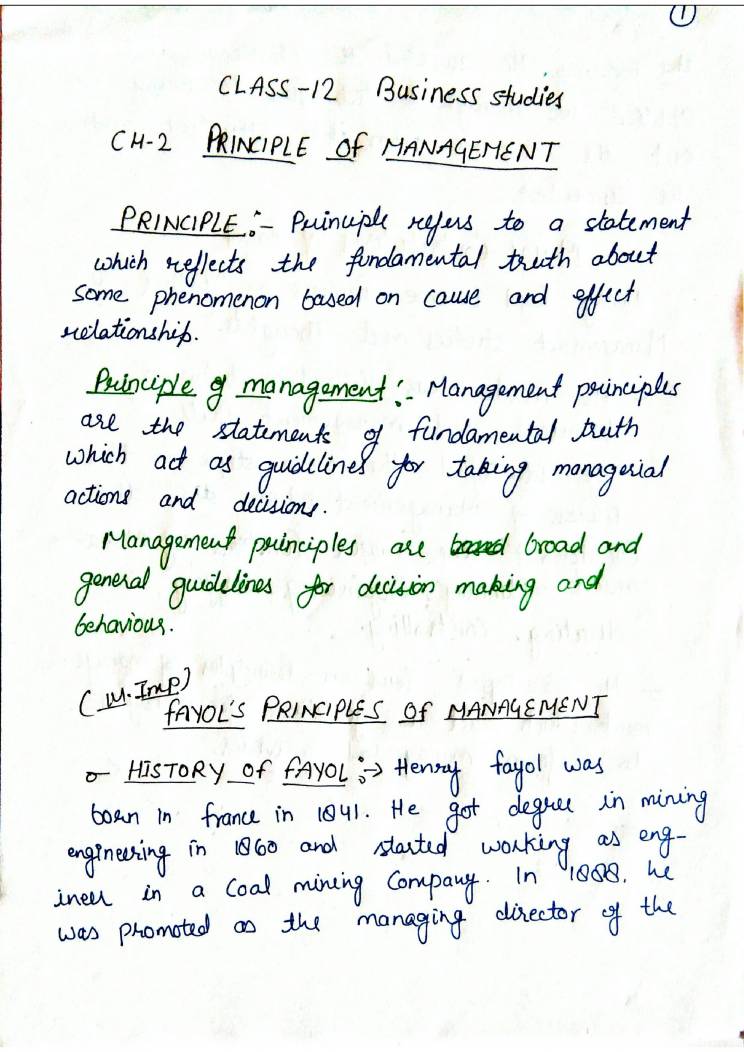 1
CLASS-12 Business studies
CH-2 PRINCIPLE Of MANAGEMENT
PRINCIPLE:- Principle refers to a statement
which reflects the fundamental truth about
some phenomenon based on cause and effect
relationship.
Principle of management:- Management principles
are the statements of fundamental truth
which act as guidelines for taking managerial
actions and decisions.
Management principles are based broad and
general guidelines for decision making and
behaviour.
(M.Imp)
FAYOL'S PRINCIPLES Of MANAGEMENT
HISTORY Of FAYOL :→ Henry fayol was
born in france in 1841. He got degree in mining
engineering in 1860 and started working as eng-
ineer in a Coal mining Company. In 1888, he
was promoted as the managing director of the